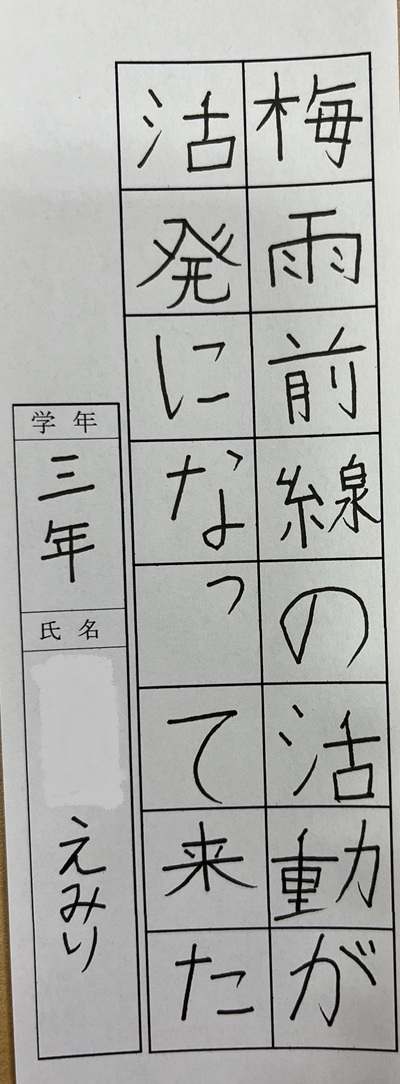 梅雨前線の活動が
活発になって来た
学年
三年
氏名
えみり